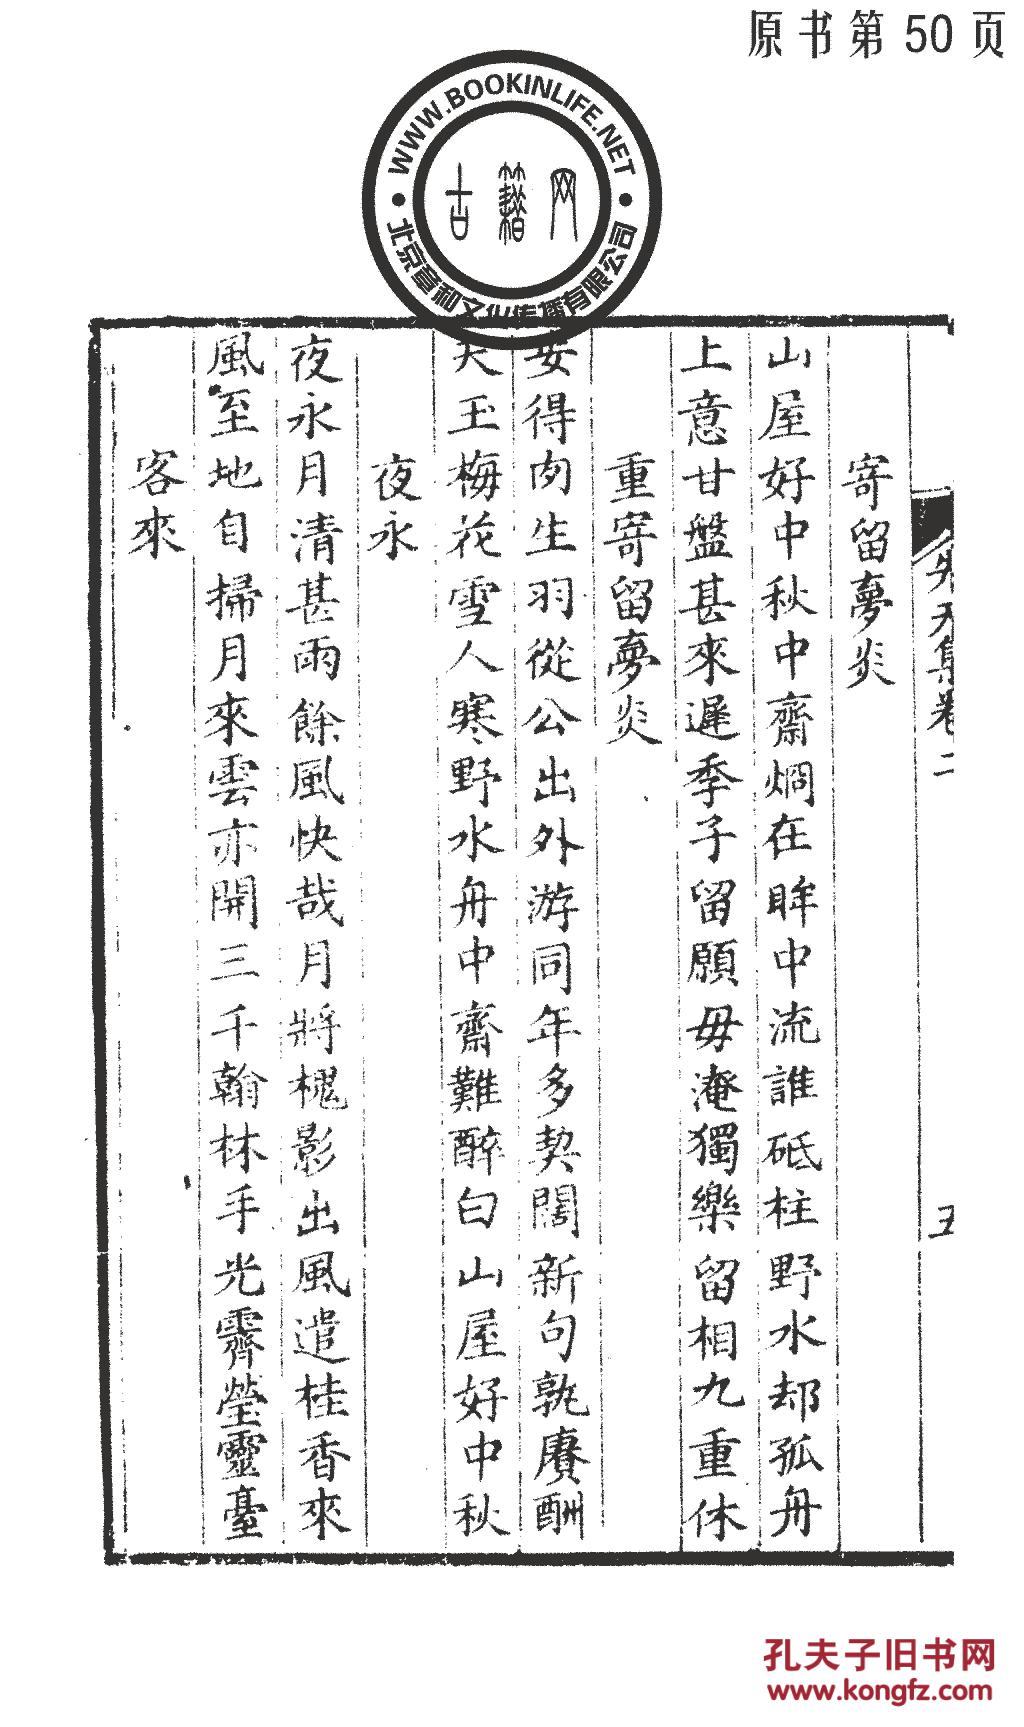 原书第50页
WWW.BOOKINLIFE.NET
古籍网
北京章和文化传播有限公司
先天集卷二
五
寄留夢炎
山屋好中秋中齋烱在眸中流誰砥柱野水却孤舟
上意甘盤甚來遲季子留願毋淹獨樂留相九重休
重寄留夢炎
安得肉生羽從公出外游同年多契闊新句孰賡酬
天玉梅花雪人寒野水舟中齋難醉白山屋好中秋
夜永
夜永月清甚雨餘風快哉月將槐影出風遣桂香來
風至地自掃月來雲亦開三千翰林手光霽瑩靈臺
客來
孔夫子旧书网
www.kongfz.com